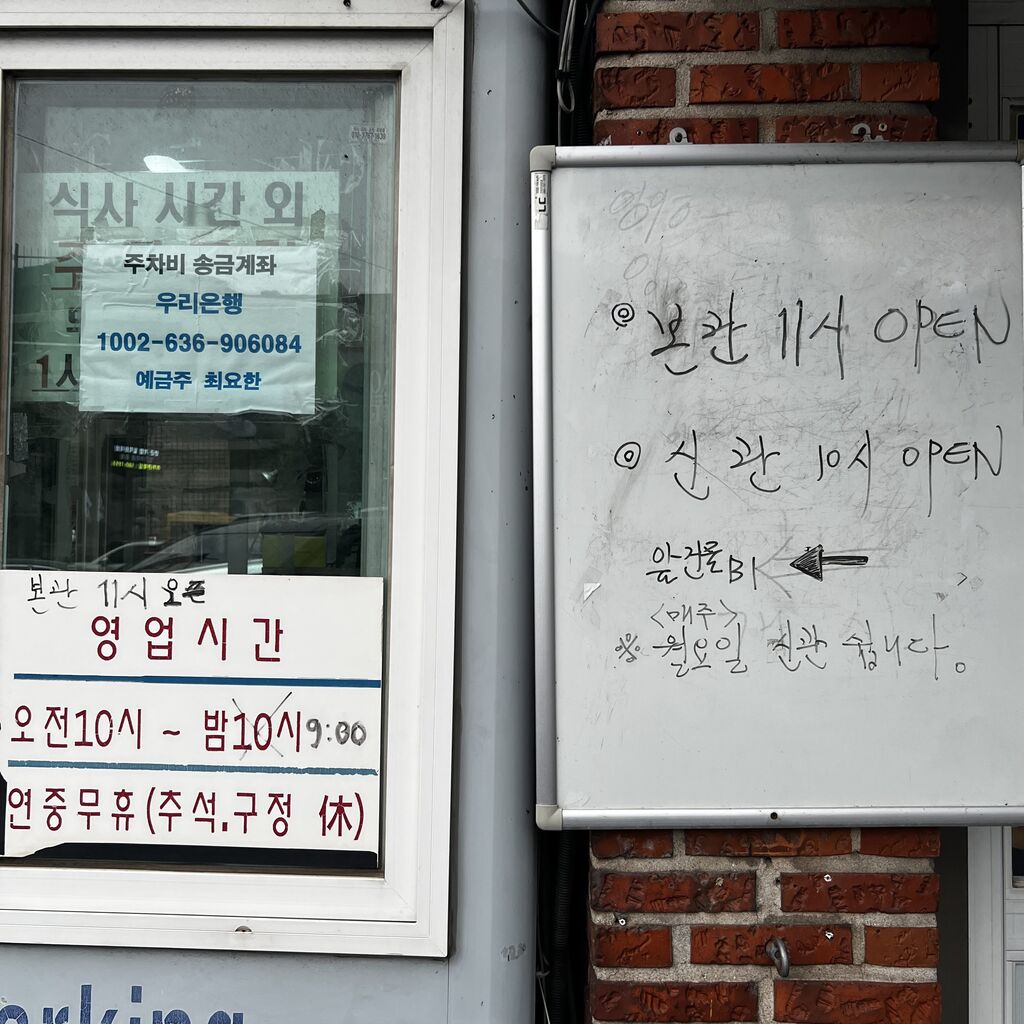 식사 시간 외
주차비 송금계좌
우리은행
1002-636-906084
예금주 최요한
본관 11시 오픈
영업시간
오전10시 ~ 밤10시 9:00
연중무휴(추석.구정 休)
◎ 본관 11시 OPEN
◎ 신관 10시 OPEN
앞건물 B1 ←
<매주>
※ 월요일 신관 쉽니다.
arking